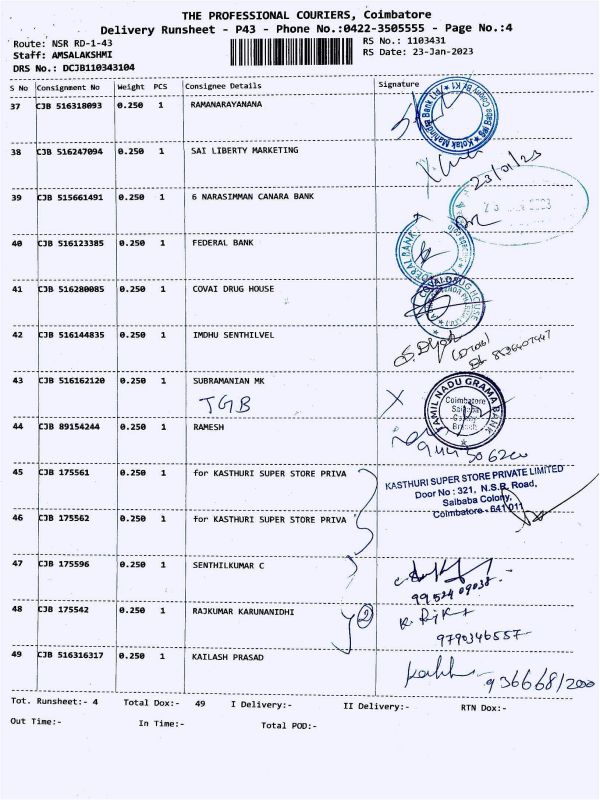 THE PROFESSIONAL COURIERS, Coimbatore
Delivery Runsheet - P43 - Phone No.:0422-3505555 - Page No.:4
Route: NSR RD-1-43
RS No.: 1103431
Staff: AMSALAKSHMI
RS Date: 23-Jan-2023
DRS No.: DCJB110343104
S No Consignment No Weight PCS Consignee Details Signature
37 CJB 516318093 0.250 1 RAMANARAYANANA
Kotak Mahindra Bank Ltd
38 CJB 516247094 0.250 1 SAI LIBERTY MARKETING
23/01/23
39 CJB 515661491 0.250 1 6 NARASIMMAN CANARA BANK
40 CJB 516123385 0.250 1 FEDERAL BANK
41 CJB 516280085 0.250 1 COVAI DRUG HOUSE
COVAI DRUG HOUSE
42 CJB 516144835 0.250 1 IMDHU SENTHILVEL
43 CJB 516162120 0.250 1 SUBRAMANIAN MK
TGB
TAMIL NADU GRAMA BANK
Coimbatore
Branch
44 CJB 89154244 0.250 1 RAMESH
45 CJB 175561 0.250 1 for KASTHURI SUPER STORE PRIVA
KASTHURI SUPER STORE PRIVATE LIMITED
Door No : 321, N.S.R. Road,
Saibaba Colony,
Coimbatore - 641 011
46 CJB 175562 0.250 1 for KASTHURI SUPER STORE PRIVA
47 CJB 175596 0.250 1 SENTHILKUMAR C
9952409038
48 CJB 175542 0.250 1 RAJKUMAR KARUNANIDHI
2
9790346557
49 CJB 516316317 0.250 1 KAILASH PRASAD
Tot. Runsheet:- 4 Total Dox:- 49 I Delivery:- II Delivery:- RTN Dox:-
Out Time:- In Time:- Total POD:-